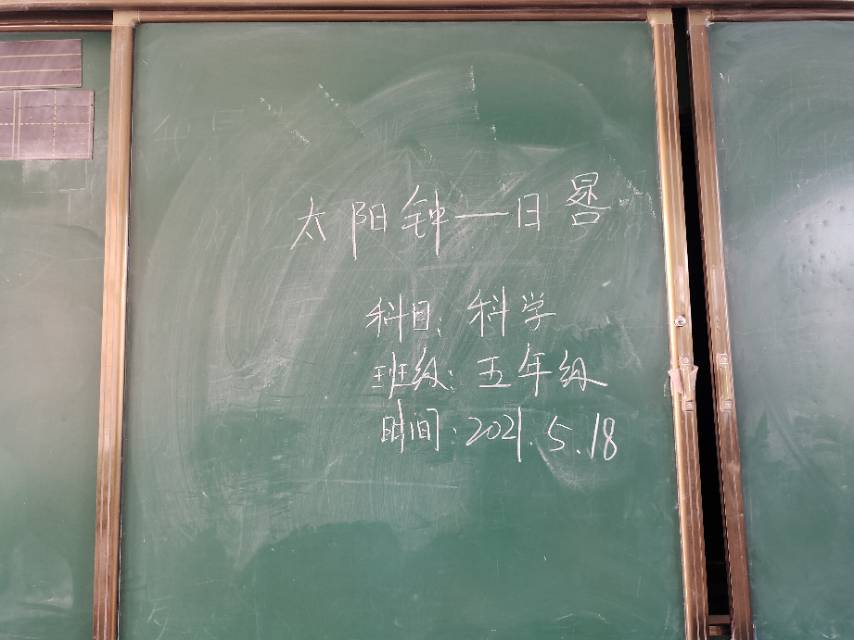 太阳钟—日晷
科目：科学
班级：五年级
时间：2021.5.18